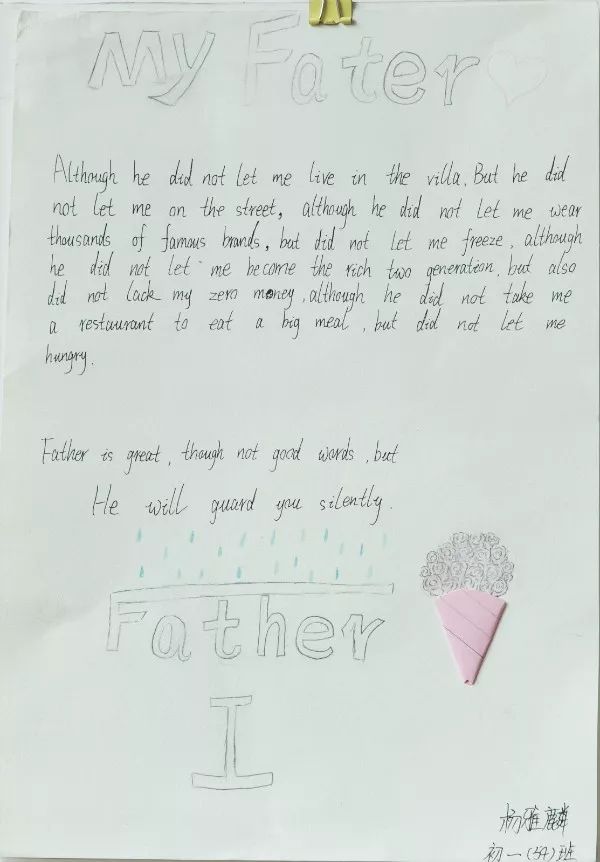 My Fater
Although he did not let me live in the villa. But he did
not let me on the street, although he did not let me wear
thousands of famous brands, but did not let me freeze, although
he did not let me become the rich two generation, but also
did not lack my zero money, although he did not take me
a restaurant to eat a big meal, but did not let me
hungry.
Father is great, though not good words, but
He will guard you silently.
Father
I
杨雅麟
初一(34)班